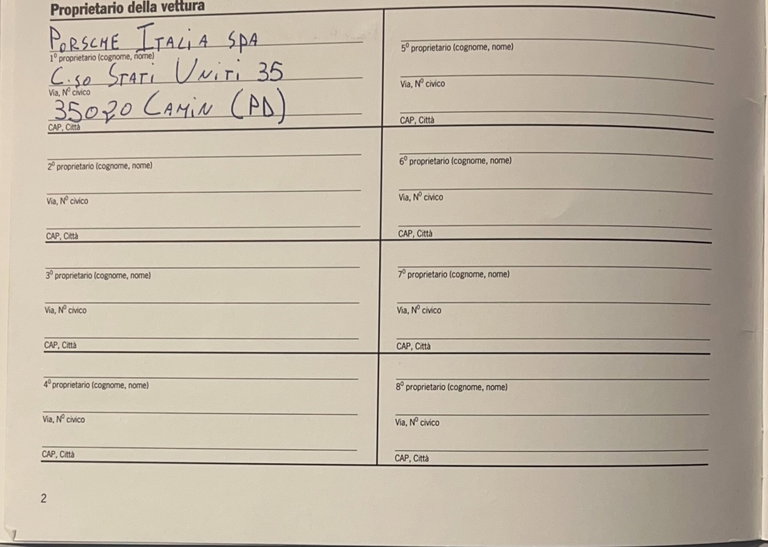 Proprietario della vettura
PORSCHE ITALIA SPA
1º proprietario (cognome, nome)
C.so STATI UNITI 35
Via, Nº civico
35020 CAMIN (PD)
CAP, Città
2º proprietario (cognome, nome)
Via, Nº civico
CAP, Città
3º proprietario (cognome, nome)
Via, Nº civico
CAP, Città
4º proprietario (cognome, nome)
Via, Nº civico
CAP, Città
5º proprietario (cognome, nome)
Via, Nº civico
CAP, Città
6º proprietario (cognome, nome)
Via, Nº civico
CAP, Città
7º proprietario (cognome, nome)
Via, Nº civico
CAP, Città
8º proprietario (cognome, nome)
Via, Nº civico
CAP, Città
2